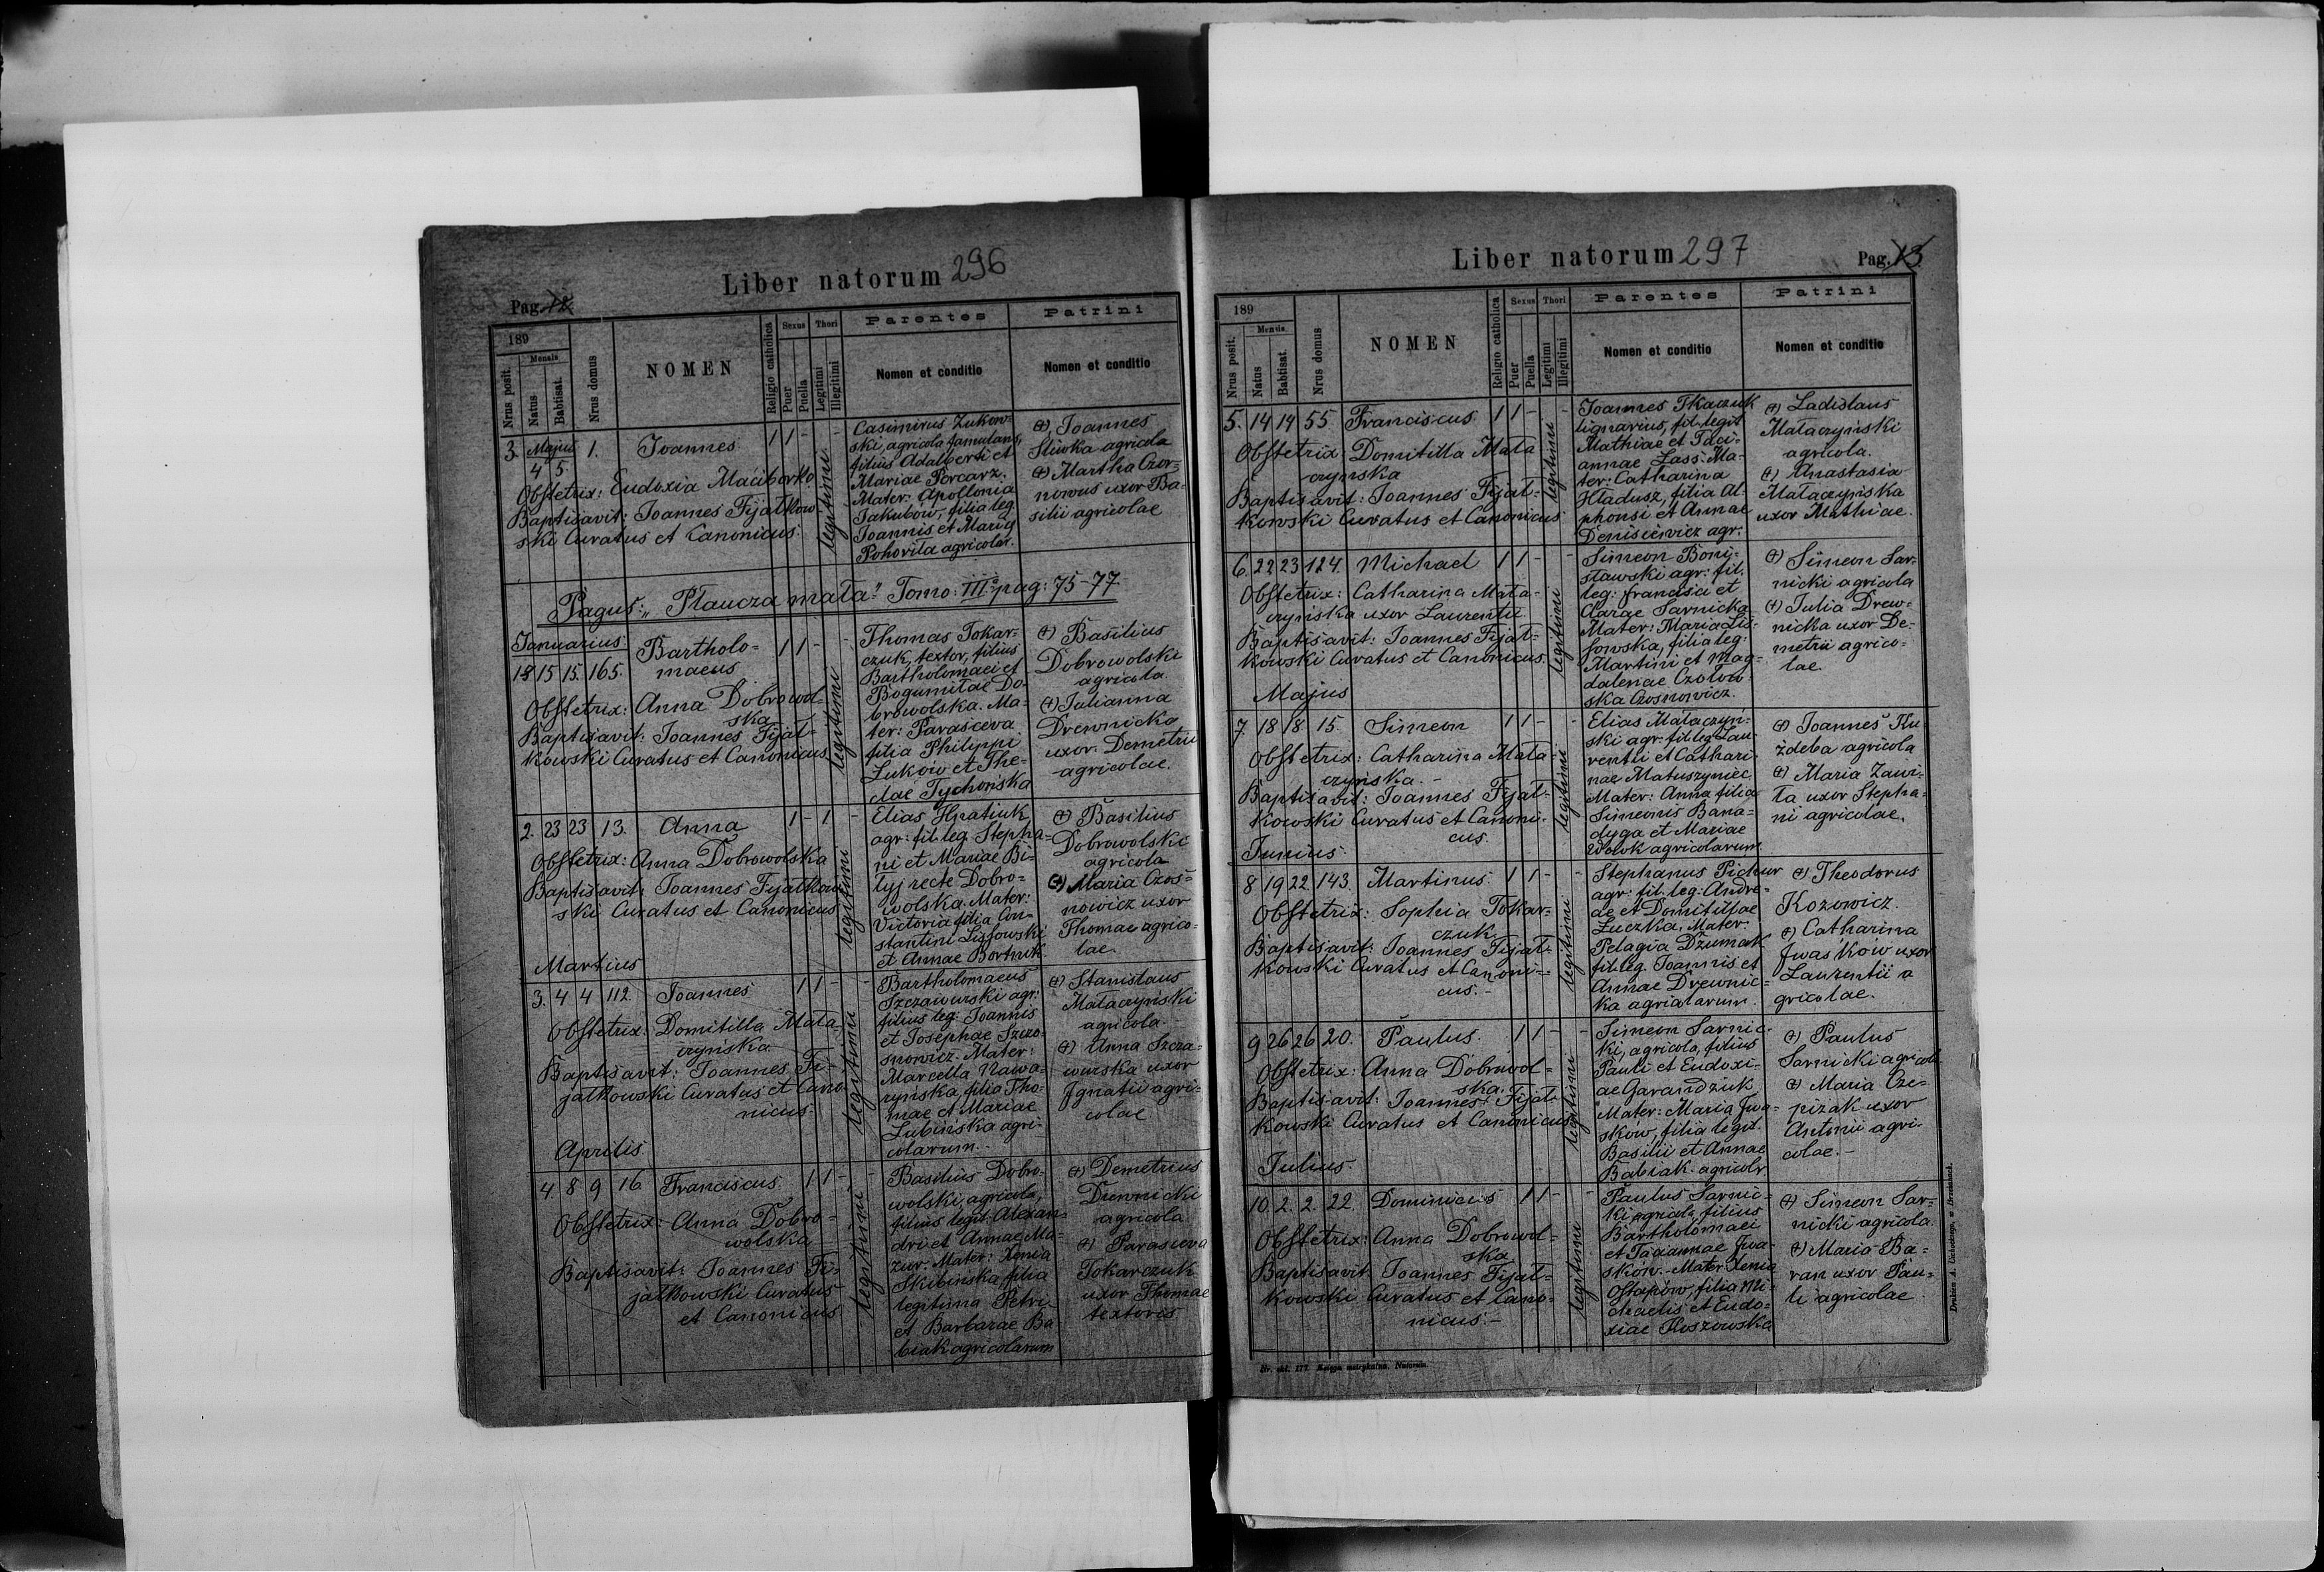 Liber natorum 296
Pag. 12
189
Mensis
Nrus posit.
Natus
Babtisat.
Nrus domus
NOMEN
Religio catholica
Sexus
Puer
Puella
Thori
Legitimi
Illegitimi
Parentes
Nomen et conditio
Patrini
Nomen et conditio
3. Majus 1. Joannes 1 1 - -
4 5.
Obstetrix: Eudoxia Maciborko
Baptisavit: Joannes Fijałkow-
ski Curatus et Canonicus.
legitimi
Casimirus Żukow-
ski, agricola famulans,
filius Adalberti et
Mariae Porcarz.
Mater: Apollonia
Jakubow, filia leg.
Joannis et Maria
Pohorila agricolar.
(+) Joannes
Sliwka agricola
(+) Martha Czor-
nowus uxor Ba-
silii agricolae
Pagus: „Płaucza mała" Tomo: III. pag: 75-77
Januarius
1 15 15. 165. Bartholo-
maeus 1 1 - -
Obstetrix: Anna Dobrowol-
ska
Baptisavit: Joannes Fijał-
kowski Curatus et Canonicus
legitimi
Thomas Tokar-
czuk, textor, filius
Bartholomaei et
Bogumiłae Do-
browolska. Ma-
ter: Parasceva
filia Philippi
Łuków et The-
clae Tychońska
(+) Basilius
Dobrowolski
agricola
(+) Julianna
Drewnicka
uxor Demetrii
agricolae.
2. 23 23 13. Anna 1 - 1 -
Obstetrix: Anna Dobrowolska
Baptisavit: Joannes Fijałkow-
ski Curatus et Canonicus
legitimi
Elias Hnatiuk
agr: fil. leg. Stepha-
ni et Mariae Bi-
łyj recte Dobro-
wolska. Mater:
Victoria filia Con-
stantini Lissowski
et Annae Bortnik
(+) Basilius
Dobrowolski
agricola
(+) Maria Czos-
nowicz uxor
Thomae agrico-
lae.
Martius
3. 4 4 112. Joannes 1 1 - -
Obstetrix: Domitilla Mata-
czyńska
Baptisavit: Joannes Fi-
jałkowski Curatus et Cano-
nicus.
legitimi
Bartholomaeus
Szczawurski agr:
filius leg: Joannis
et Josephae Szczo-
snowicz. Mater:
Marcella Nawa-
ryńska, filia Tho-
mae et Mariae
Lubińska agri-
colarum.
(+) Stanislaus
Mataczyński
agricola.
(+) Anna Szcza-
wurska uxor
Ignatii agri-
colae
Aprilis
4. 8 9 16 Franciscus. 1 1 - -
Obstetrix: Anna Dobro-
wolska
Baptisavit: Joannes Fi-
jałkowski Curatus
et Canonicus
legitimi
Basilius Dobro-
wolski, agricola,
filius legit. Alexan-
dri et Annae Ma-
zur. Mater: Xenia
Skibińska, filia
legitima Petri
et Barbarae Ba-
biak agricolarum
(+) Demetrius
Drewnicki
agricola
(+) Parasceva
Tokarczuk
uxor Thomae
textoris
Liber natorum 297
Pag. 13
189
Mensis
Nrus posit.
Natus
Babtisat.
Nrus domus
NOMEN
Religio catholica
Sexus
Puer
Puella
Thori
Legitimi
Illegitimi
Parentes
Nomen et conditio
Patrini
Nomen et conditio
5. 14 14 55 Franciscus 1 1 - -
Obstetrix Domitilla Mata-
czyńska
Baptisavit: Joannes Fijał-
kowski Curatus et Canonicus
legitimi
Joannes Tkaczuk
lignarius, fil. legit
Mathiae et Taci-
annae Lass. Ma-
ter: Catharina
Hładusz, filia Al-
phonsi et Annae
Denisiewicz agr:
(+) Ladislaus
Mataczyński
agricola.
(+) Anastasia
Mataczyńska
uxor Mathiae.
6. 22 23 124. Michael 1 1 - -
Obstetrix: Catharina Mata-
czyńska uxor Laurentii
Baptisavit: Joannes Fijał-
kowski Curatus et Canonicus.
legitimi
Simeon Boni-
sławski agr: fil.
leg: Francisci et
Clarae Sarnicka
Mater: Maria Lis-
sowska, filia leg:
Martini et Mag-
dalenae Czołow-
ska Czosnowicz.
(+) Simeon Sar-
nicki agricola
(+) Julia Drew-
nicka uxor De-
metrii agrico-
lae.
Majus
7. 18 18 15. Simeon 1 1 - -
Obstetrix: Catharina Mata-
czyńska. -
Baptisavit: Joannes Fijał-
kowski Curatus et Canoni-
cus.
legitimi
Elias Mataczyń-
ski agr: fil. leg. Lau-
rentii et Cathari-
nae Matuszyniec
Mater: Anna filia
Simeonis Bana-
dyga et Mariae
Wowk agricolarum
(+) Joannes Ku-
żdeba agricola
(+) Maria Zawi-
ła uxor Stepha-
ni agricolae.
Junius.
8 19 22 143. Martinus. 1 1 - -
Obstetrix: Sophia Tokar-
czuk
Baptisavit: Joannes Fijał-
kowski Curatus et Canoni-
cus. -
legitimi
Stephanus Pichur
agr: fil. leg: Andre-
ae et Domitillae
Łuczka. Mater:
Pelagia Dżumak
fil. leg. Joannis et
Annae Drewnic-
ka agricolarum.
(+) Theodorus
Kozowicz.
(+) Catharina
Iwaśków uxor
Laurentii a
gricolae.
9 26 26 20. Paulus. 1 1 - -
Obstetrix: Anna Dobrowol-
ska.
Baptisavit: Joannes Fijał-
kowski Curatus et Canonicus
legitimi
Simeon Sarnic-
ki, agricola, filius
Pauli et Eudoxi-
ae Garandziuk
Mater: Maria Iwa-
skow, filia legit.
Basilii et Annae
Babiak agricolr
(+) Paulus
Sarnicki agricola
(+) Maria Cze-
pizak uxor
Antonii agri-
colae. -
Julius.
10. 2. 2. 22. Dominicus 1 1 - -
Obstetrix: Anna Dobrowol-
ska
Baptisavit: Joannes Fijał-
kowski Curatus et Cano-
nicus. -
legitimi
Paulus Sarnic-
ki agricola, filius
Bartholomaei
et Taciannae Iwa-
sków. Mater: Xenia
Ostapów, filia Mi-
chaelis et Eudo-
xiae Hoszowska
(+) Simeon Sar-
nicki agricola.
(+) Maria Ba-
ran uxor Pau-
li agricolae.
Nr. skł. 177. Księga metrykalna. Natorum.